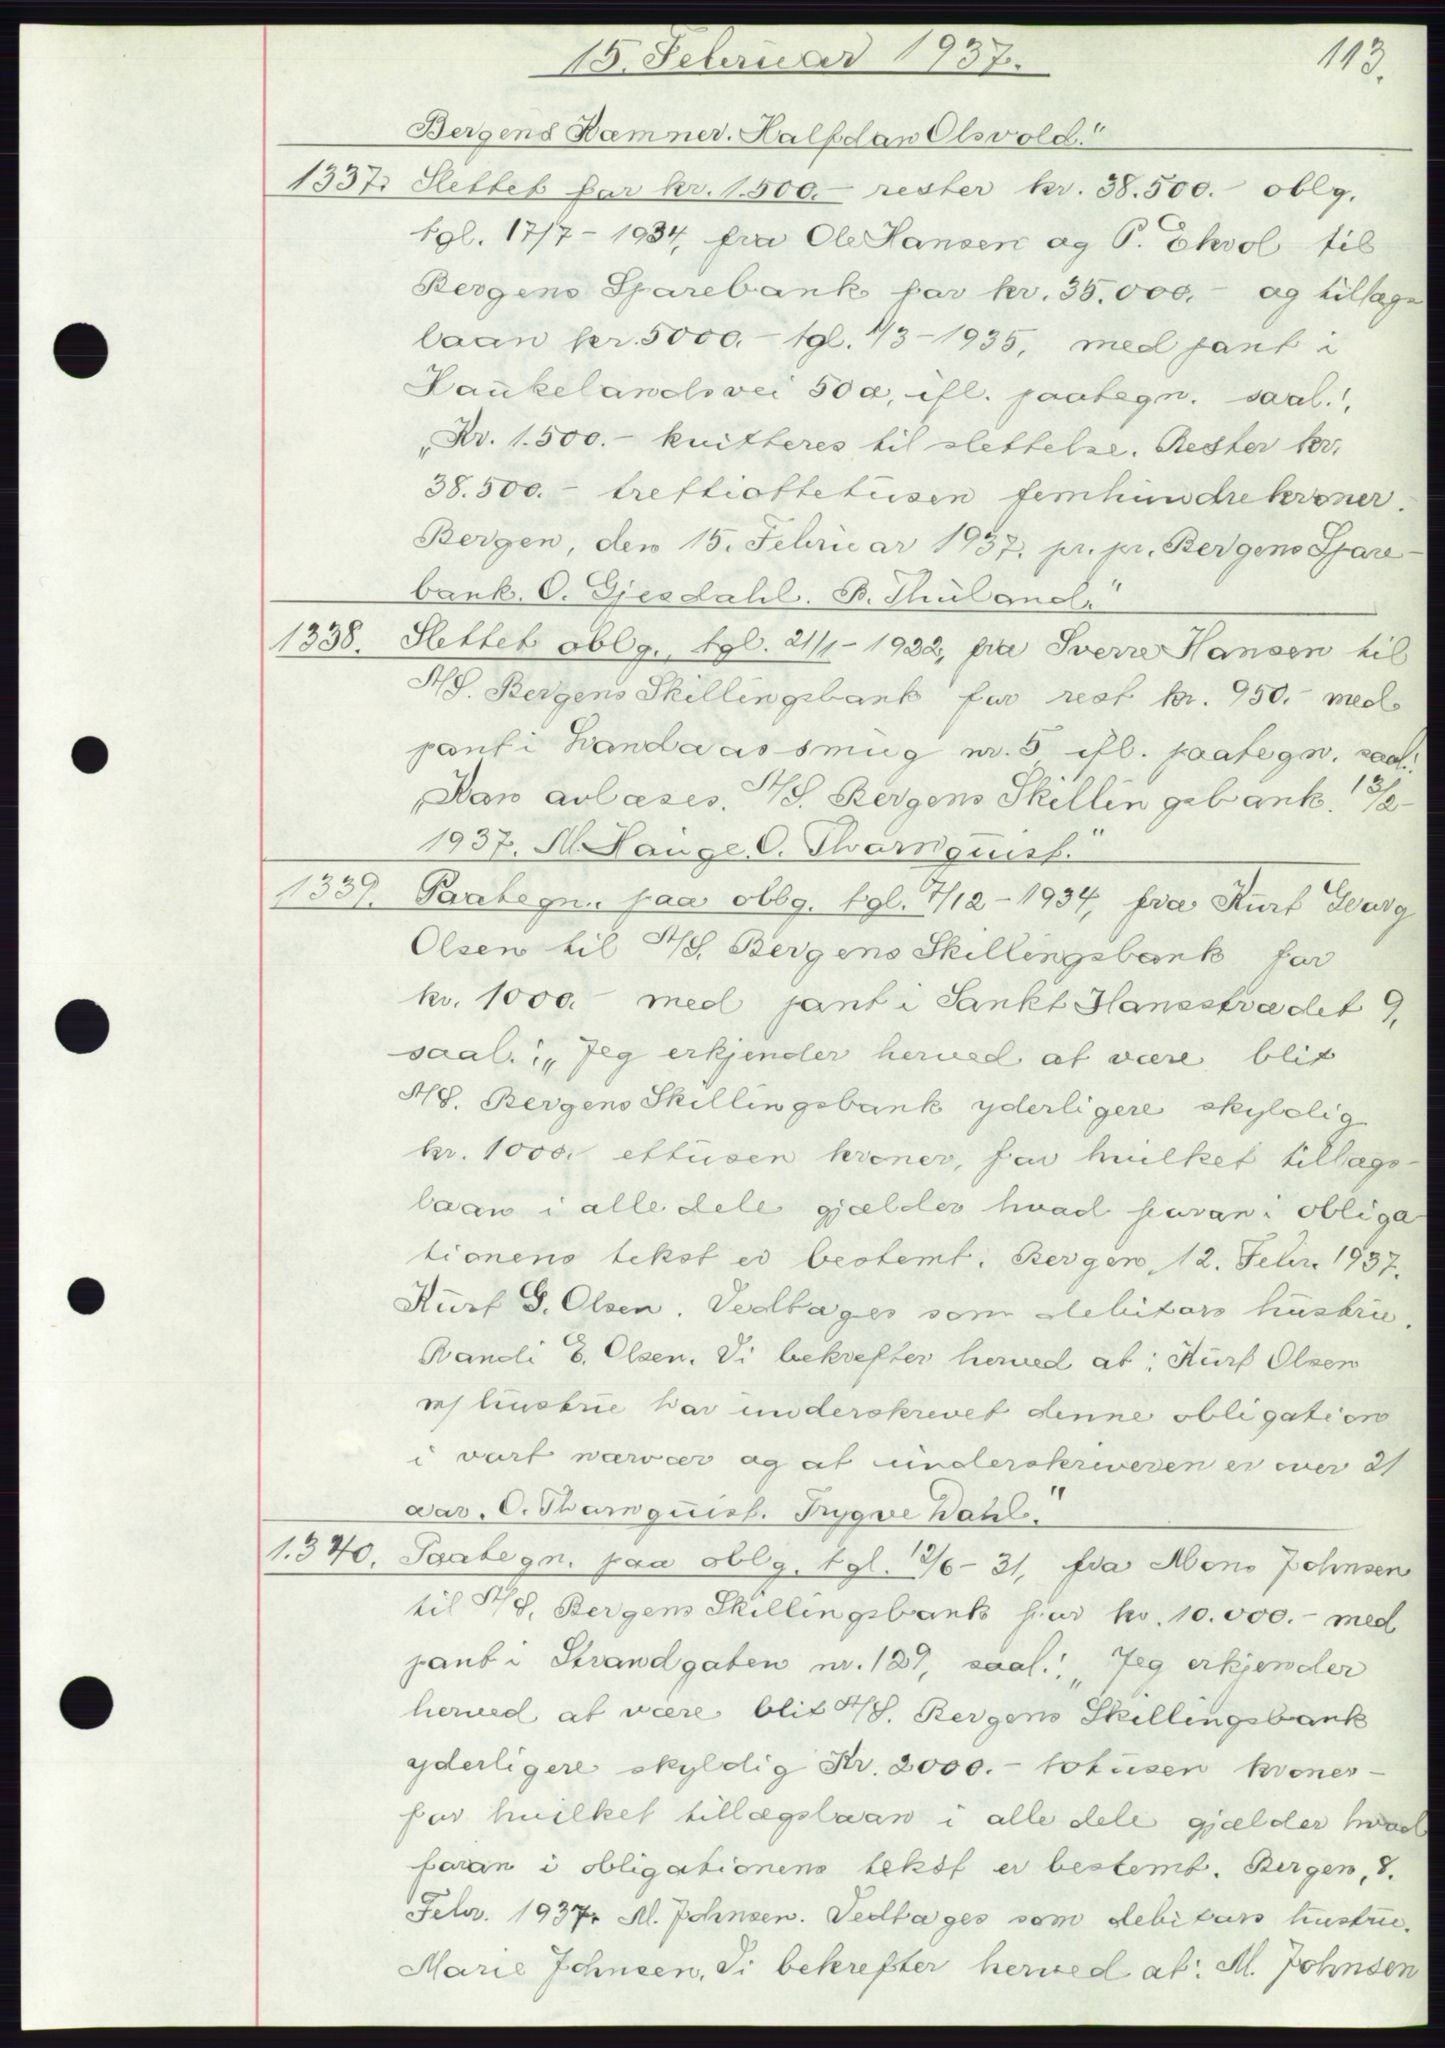 15. Februar 1937.
113.
Bergens Kæmner. Halfdan Olsvold."
1337. Slettet for kr. 1.500.- rester kr. 38.500.- oblg.
tgl. 17/7-1934, fra Ole Hansen og P. Ekrol til
Bergens Sparebank for kr. 35.000.- og tillægs
laan kr. 5000.- tgl. 1/3-1935, med pant i
Haukelandsvei 50a, ifl. paategn. saal.:
"Kr. 1.500.- kvitteres til slettelse. Rester kr.
38.500.- trettiottetusen femhundre kroner.
Bergen, den 15. Februar 1937. pr. pr. Bergens Spare-
bank. O. Gjesdahl. B. Thuland."
1338. Slettet oblg., tgl. 21/1-1922, fra Sverre Hansen til
A/S. Bergens Skillingsbank for rest kr. 950.- med
pant i Landaassmug nr. 5 ifl. paategn. saal.:
"Kan avlæses. A/S. Bergens Skillingsbank. 13/2-
1937. M. Hauge. O. Thornquist."
1339. Paategn. paa oblg. tgl. 7/12-1934, fra Kurt Georg
Olsen til A/S. Bergens Skillingsbank for
kr. 1000.- med pant i Sankt Hansstrædet 9,
saal.: "Jeg erkjender herved at være blit
A/S. Bergens Skillingsbank yderligere skyldig
kr. 1000. ettusen kroner, for hvilket tillægs-
laan i alle dele gjælder hvad foran i obliga
tionens tekst er bestemt. Bergen, 12. Febr. 1937.
Kurt G. Olsen. Vedtages som debitors hustru.
Randi E. Olsen. Vi bekrefter herved at: Kurt Olsen
m/ hustru har underskrevet denne obligation
i vort nærvær og at underskriveren er over 21
aar. O. Thornquist. Trygve Dahl."
1.340. Paategn. paa oblg. tgl. 12/6-31, fra Mons Johnsen
til A/S. Bergens Skillingsbank for kr. 10.000.- med
pant i Strandgaten nr. 129, saal.: "Jeg erkjender
herved at være blit A/S. Bergens Skillingsbank
yderligere skyldig Kr. 2000.- totusen kroner-
for hvilket tillægslaan i alle dele gjælder hvad
foran i obligationens tekst er bestemt. Bergen, 8.
Febr. 1937. M. Johnsen. Vedtages som debitors hustru.
Marie Johnsen. Vi bekrefter herved at: M. Johnsen